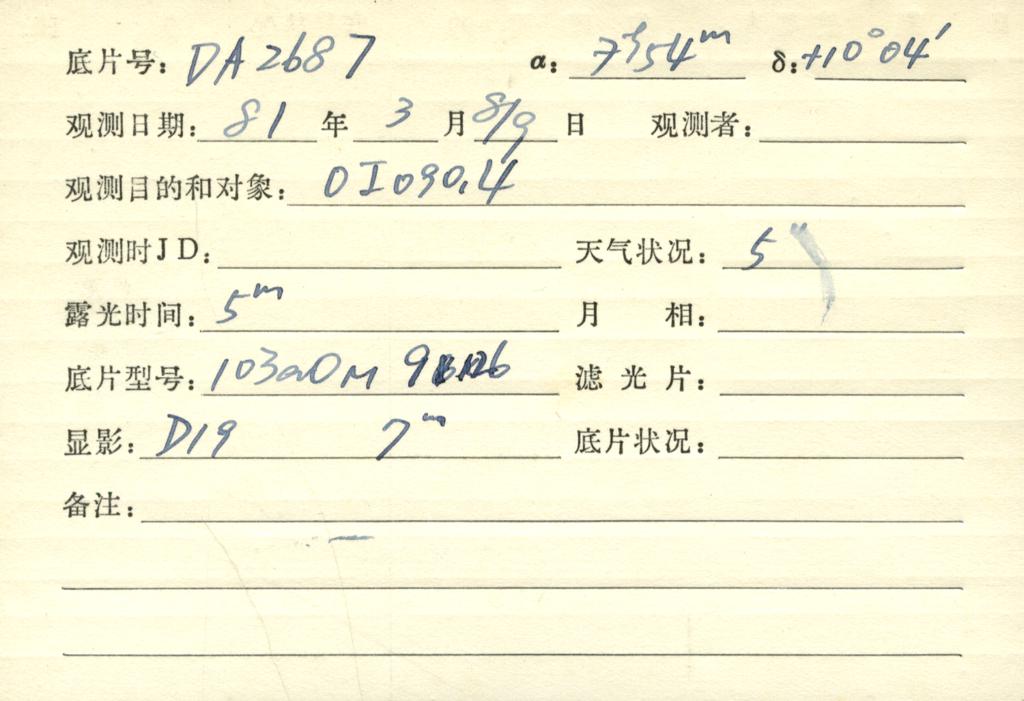 底片号: DA2687 α: 7ʰ54ᵐ δ: +10°04′
观测日期: 81 年 3 月 8/9 日 观测者:
观测目的和对象: OI090.4
观测时JD: 天气状况: 5″
露光时间: 5ᵐ 月 相:
底片型号: 103aO 滤光片:
显影: D19 7ᵐ 底片状况:
备注: